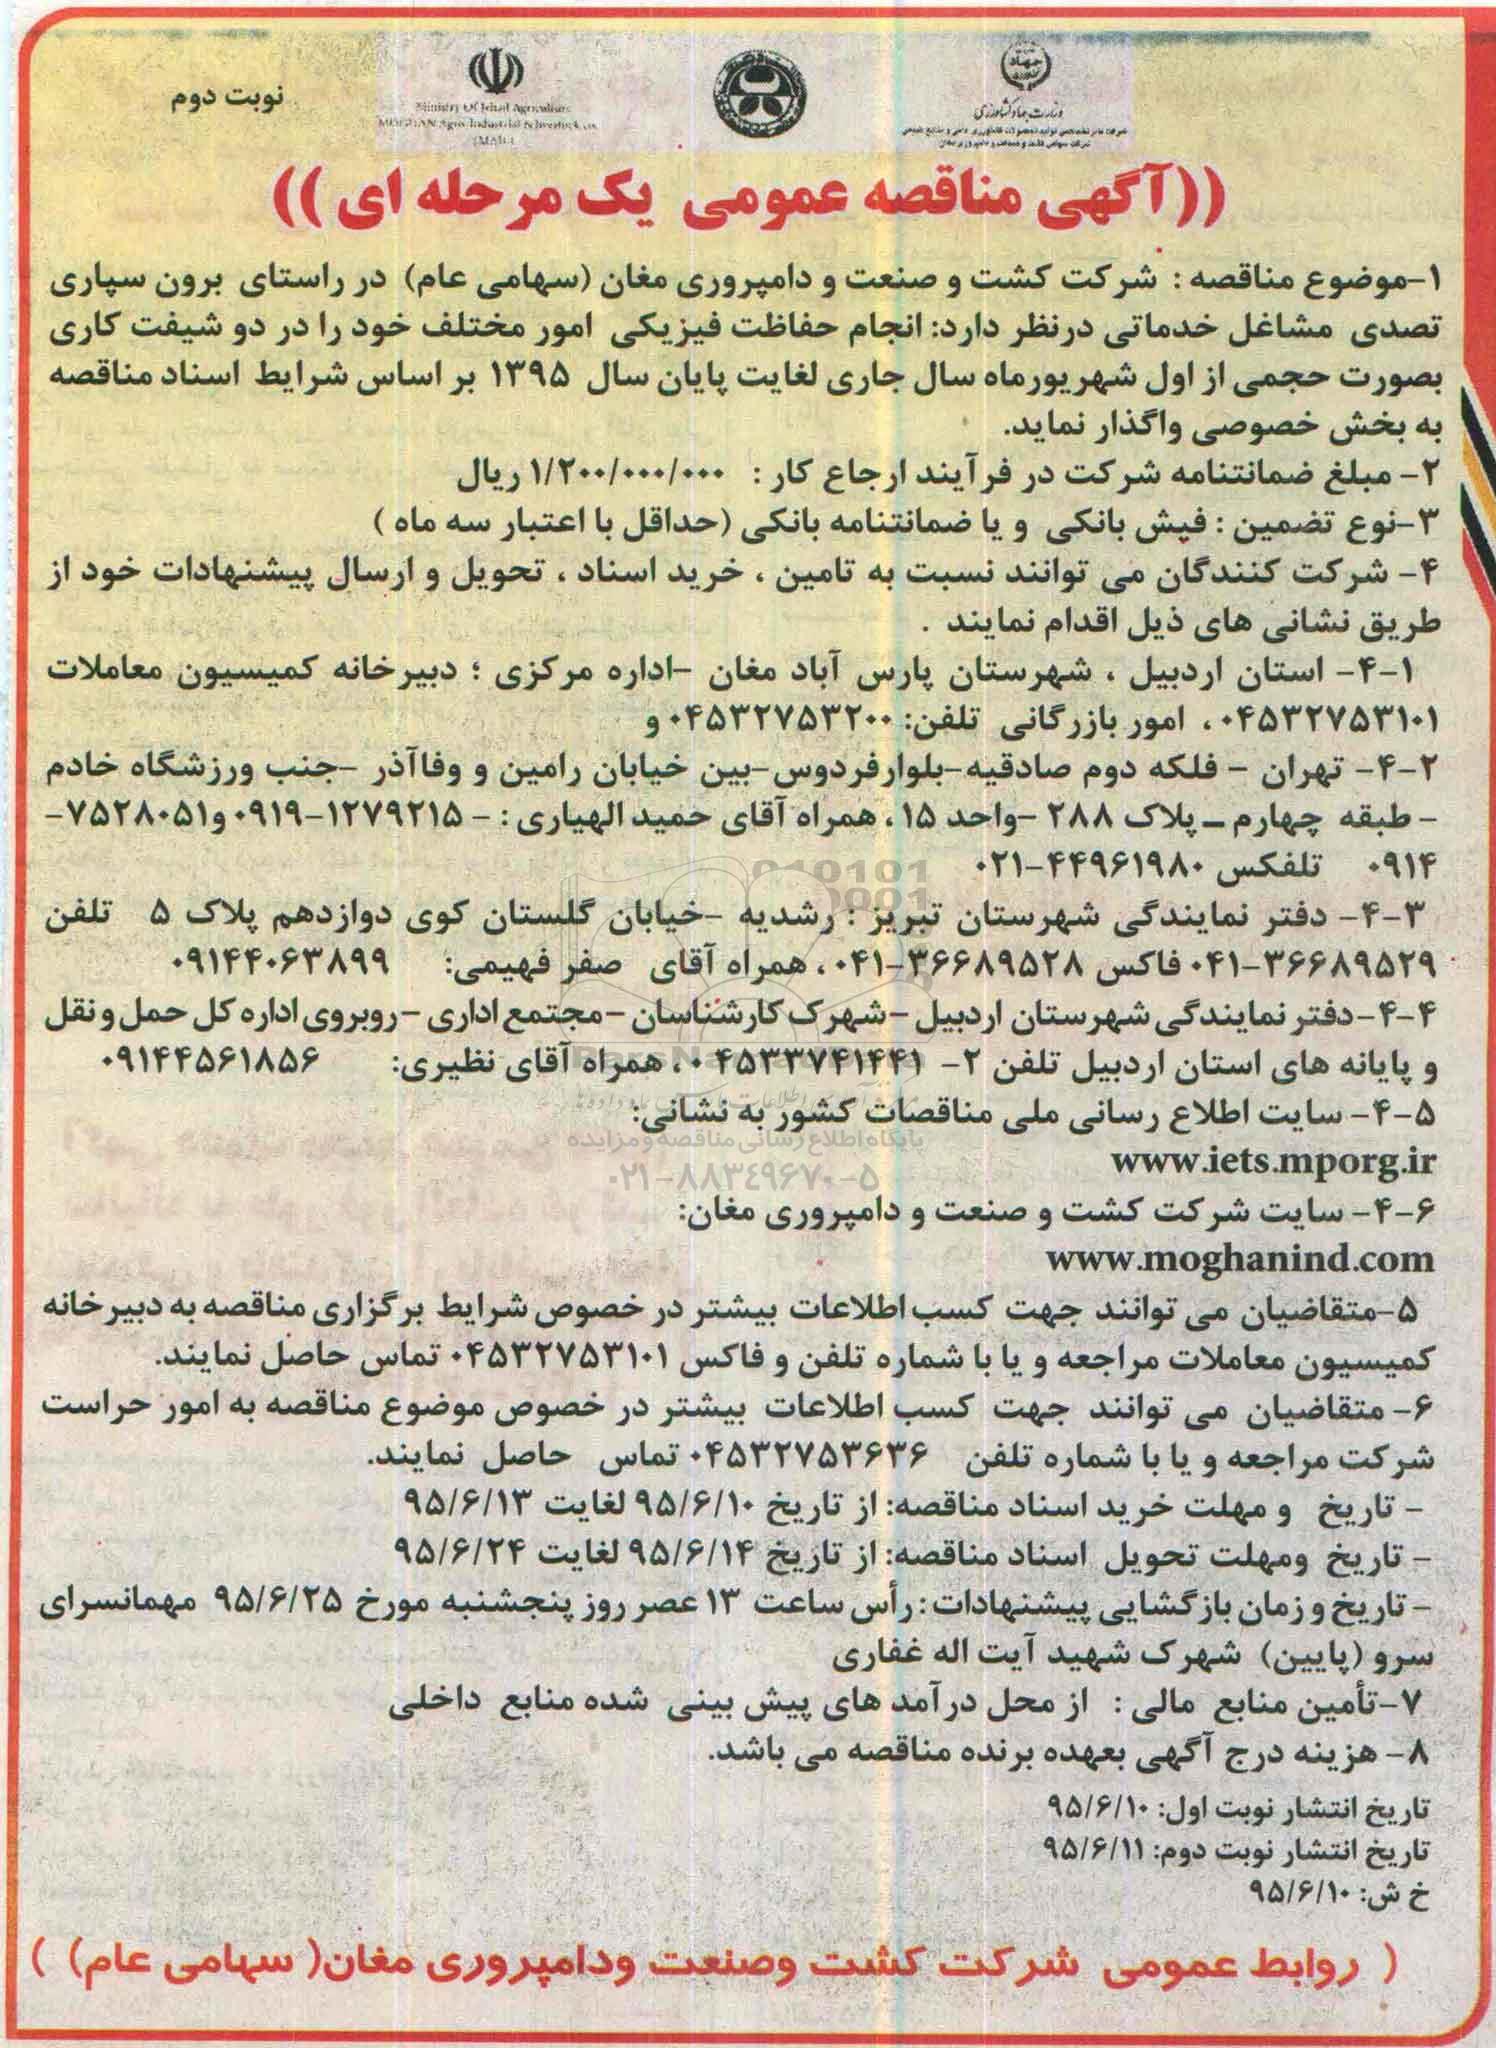 نوبت دوم
Ministry Of Jehad Agriculture
MOGHAN Agro-Industrial & Livestock co.
وزارت جهاد کشاورزی
((آگهی مناقصه عمومی یک مرحله ای))
۱-موضوع مناقصه : شرکت کشت و صنعت و دامپروری مغان (سهامی عام) در راستای برون سپاری
تصدی مشاغل خدماتی درنظر دارد: انجام حفاظت فیزیکی امور مختلف خود را در دو شیفت کاری
بصورت حجمی از اول شهریورماه سال جاری لغایت پایان سال ۱۳۹۵ بر اساس شرایط اسناد مناقصه
به بخش خصوصی واگذار نماید.
۲- مبلغ ضمانتنامه شرکت در فرآیند ارجاع کار : ۱/۲۰۰/۰۰۰/۰۰۰ ریال
۳-نوع تضمین : فیش بانکی و یا ضمانتنامه بانکی (حداقل با اعتبار سه ماه )
۴- شرکت کنندگان می توانند نسبت به تامین ، خرید اسناد ، تحویل و ارسال پیشنهادات خود از
طریق نشانی های ذیل اقدام نمایند .
۴-۱- استان اردبیل ، شهرستان پارس آباد مغان -اداره مرکزی ؛ دبیرخانه کمیسیون معاملات
۰۴۵۳۲۷۵۳۱۰۱، امور بازرگانی تلفن: ۰۴۵۳۲۷۵۳۲۰۰ و
۴-۲- تهران - فلکه دوم صادقیه-بلوارفردوس-بین خیابان رامین و وفاآذر -جنب ورزشگاه خادم
- طبقه چهارم – پلاک ۲۸۸ -واحد ۱۵ ، همراه آقای حمید الهیاری : - ۱۲۷۹۲۱۵-۰۹۱۹ و۷۵۲۸۰۵۱-
۰۹۱۴ تلفکس ۴۴۹۶۱۹۸۰-۰۲۱
۴-۳- دفتر نمایندگی شهرستان تبریز : رشدیه -خیابان گلستان کوی دوازدهم پلاک ۵ تلفن
۳۶۶۸۹۵۲۹-۰۴۱ فاکس ۳۶۶۸۹۵۲۸-۰۴۱ ، همراه آقای صفر فهیمی: ۰۹۱۴۴۰۶۳۸۹۹
۴-۴-دفتر نمایندگی شهرستان اردبیل -شهرک کارشناسان -مجتمع اداری -روبروی اداره کل حمل و نقل
و پایانه های استان اردبیل تلفن ۲- ۰۴۵۳۳۷۴۱۴۴۱، همراه آقای نظیری: ۰۹۱۴۴۵۶۱۸۵۶
۴-۵- سایت اطلاع رسانی ملی مناقصات کشور به نشانی:
پایگاه اطلاع رسانی مناقصه و مزایده
www.iets.mporg.ir
۰۲۱-۸۸۳٤۹۶۷۰-۵
۴-۶- سایت شرکت کشت و صنعت و دامپروری مغان:
www.moghanind.com
۵-متقاضیان می توانند جهت کسب اطلاعات بیشتر در خصوص شرایط برگزاری مناقصه به دبیرخانه
کمیسیون معاملات مراجعه و یا با شماره تلفن و فاکس ۰۴۵۳۲۷۵۳۱۰۱ تماس حاصل نمایند.
۶- متقاضیان می توانند جهت کسب اطلاعات بیشتر در خصوص موضوع مناقصه به امور حراست
شرکت مراجعه و یا با شماره تلفن ۰۴۵۳۲۷۵۳۶۳۶ تماس حاصل نمایند.
- تاریخ و مهلت خرید اسناد مناقصه: از تاریخ ۹۵/۶/۱۰ لغایت ۹۵/۶/۱۳
- تاریخ ومهلت تحویل اسناد مناقصه: از تاریخ ۹۵/۶/۱۴ لغایت ۹۵/۶/۲۴
- تاریخ و زمان بازگشایی پیشنهادات : رأس ساعت ۱۳ عصر روز پنجشنبه مورخ ۹۵/۶/۲۵ مهمانسرای
سرو (پایین) شهرک شهید آیت اله غفاری
۷-تأمین منابع مالی : از محل درآمد های پیش بینی شده منابع داخلی
۸- هزینه درج آگهی بعهده برنده مناقصه می باشد.
تاریخ انتشار نوبت اول: ۹۵/۶/۱۰
تاریخ انتشار نوبت دوم: ۹۵/۶/۱۱
خ ش: ۹۵/۶/۱۰
( روابط عمومی شرکت کشت وصنعت ودامپروری مغان( سهامی عام) )